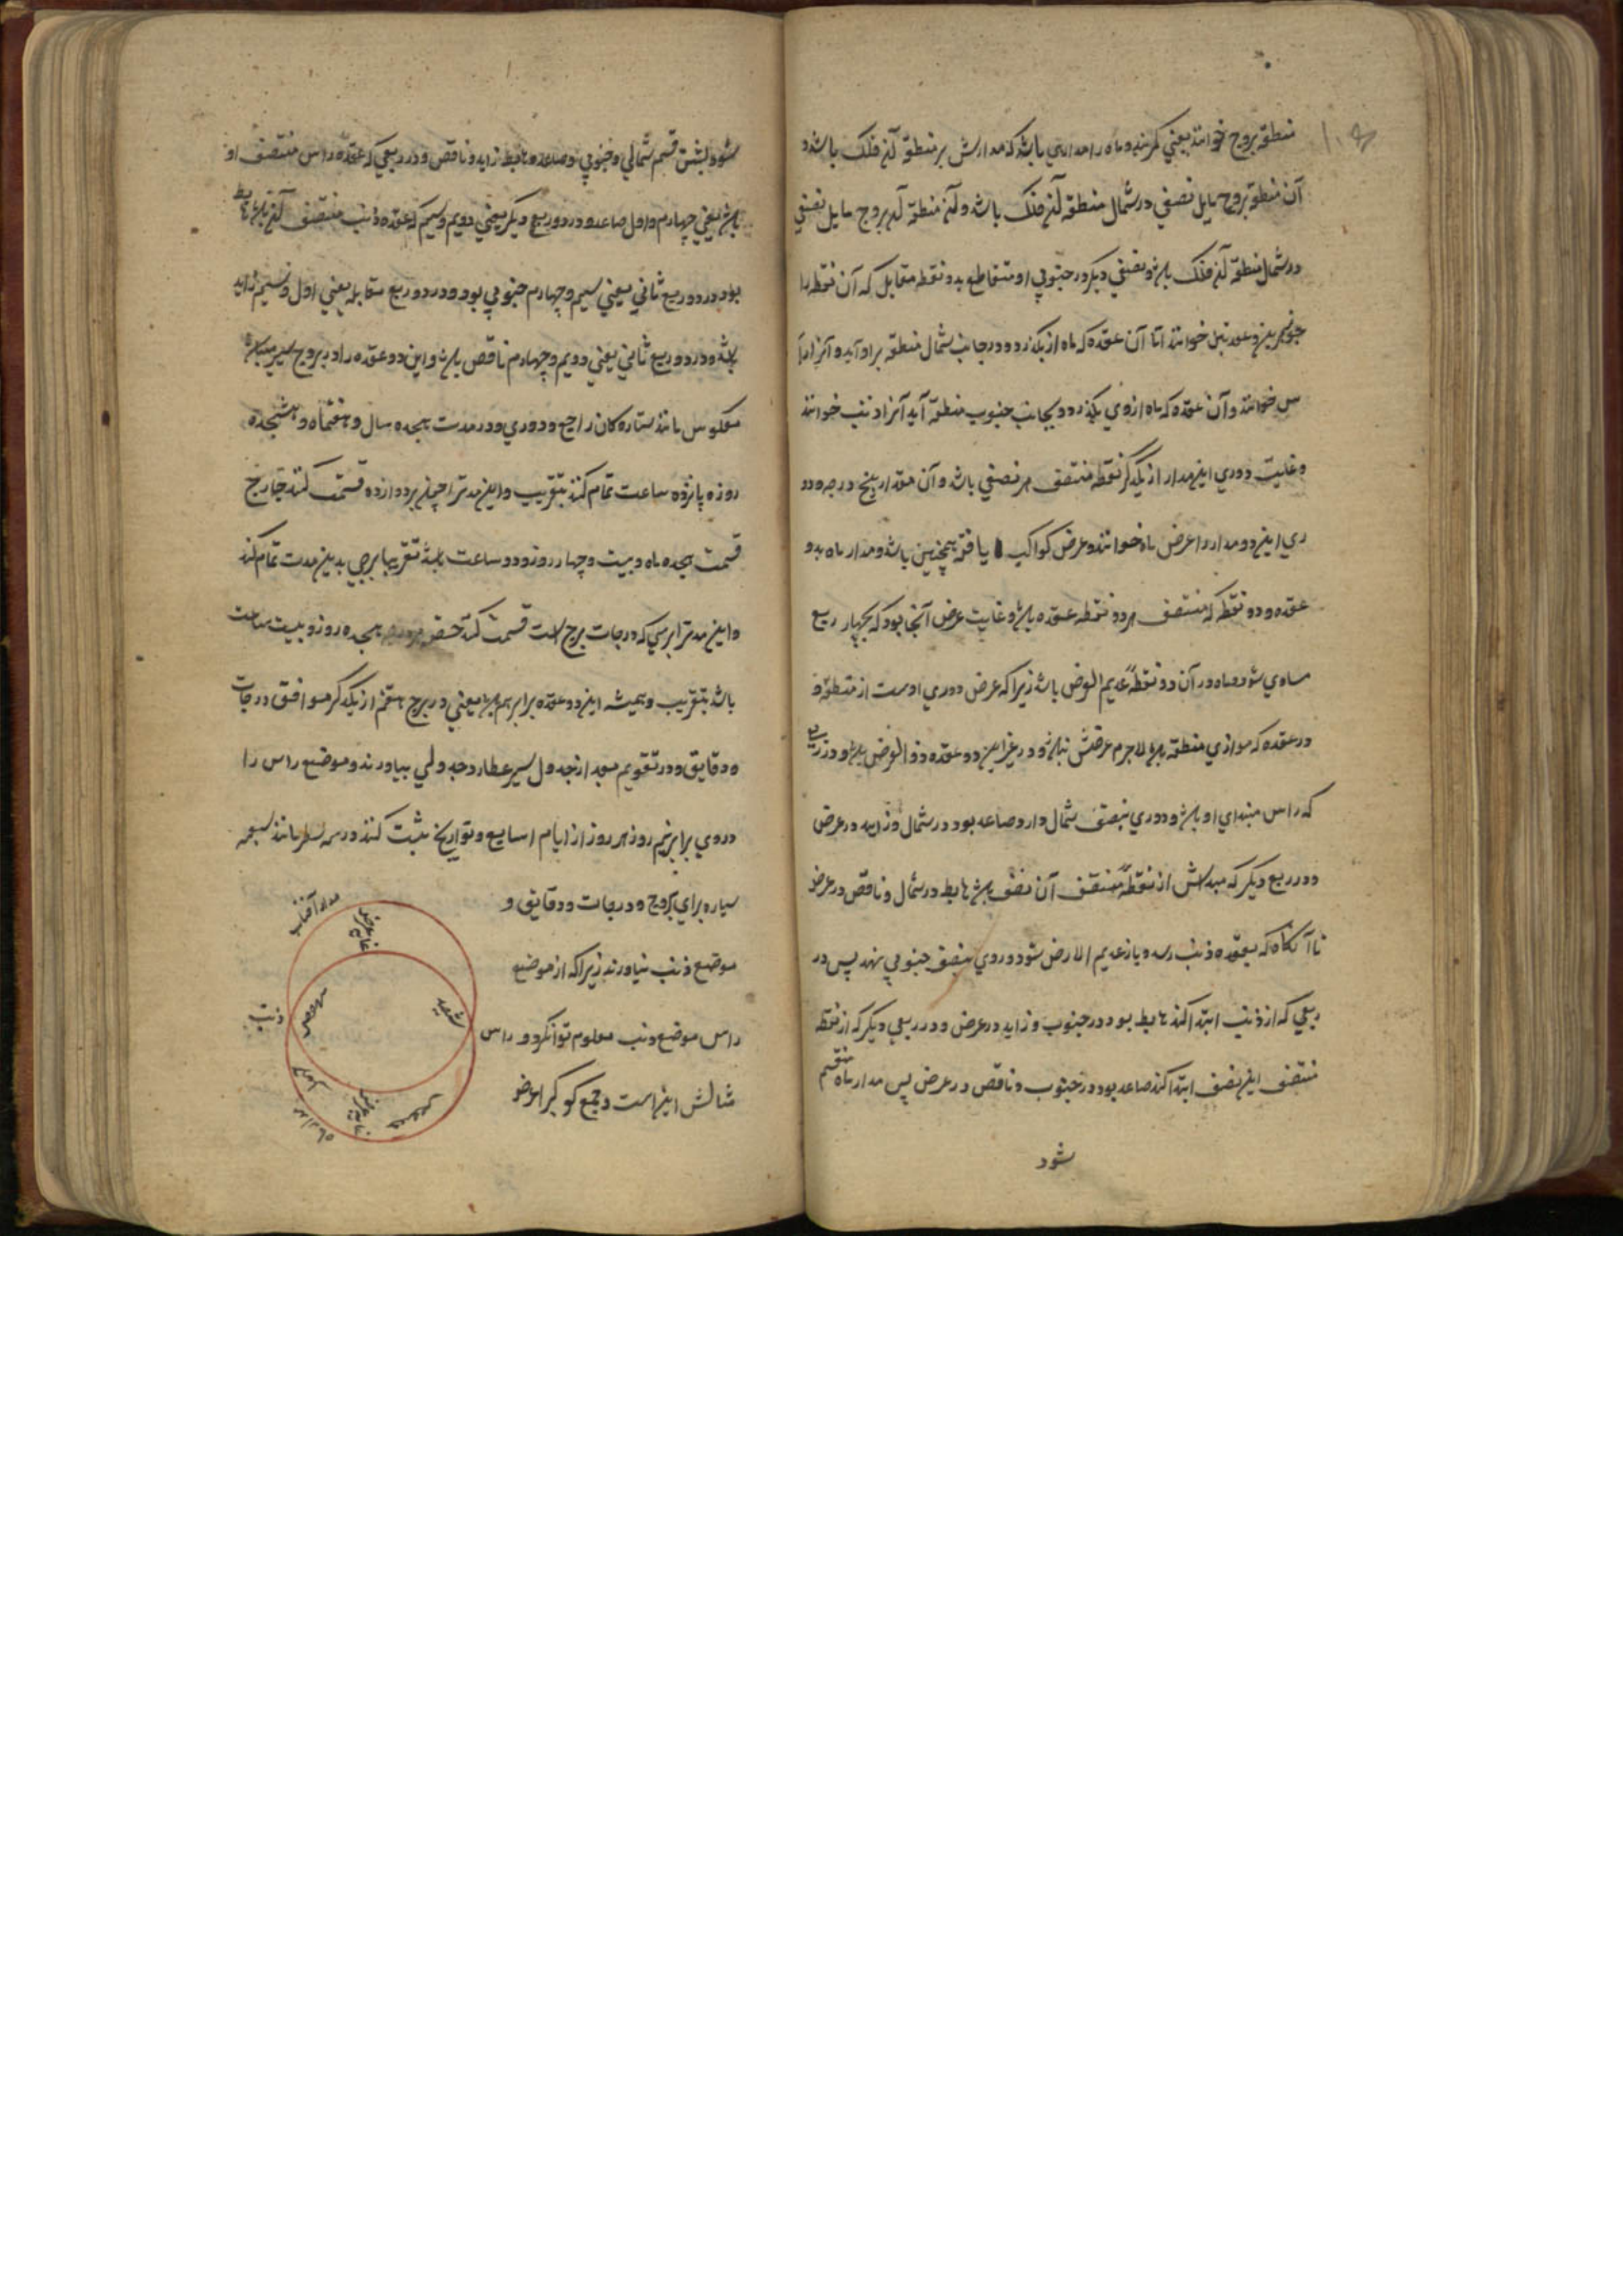 منطقه بروج خوانند یعنی کمربند و ماه را مداری باشد که مدارش بر منطقه آن فلک باشد و
آن منطقه بروج مایل نصفی در شمال منطقه آن فلک باشد و آن منطقه آن بروج مایل نصفی
در شمال منطقه آن فلک باشد و نصفی دیگر در جنوبی او متقاطع بدو نقطه مقابل که آن نقطه را
جوزهرین و عقدتین خوانند اما آن عقده که ماه از بگذرد و در جانب شمال منطقه براو آید و آنرا را
س خوانند و آن عقده که ماه ازوی بگذرد و بجانب جنوب منطقه آید آنرا ذنب خوانند
و غایت دوری این مدار از یکدگر نقطه منتصف هر نصفی باشد و آن مقدار پنج درجه و دو
ری این دو مدار را عرض ماه خوانند و عرض کواکب یافته همچنین باشد و مدار ماه بدو
عقده و دو نقطه که منتصف هر دو نقطه عقده باشد و غایت عرض آنجا بود که بچهار ربع
مساوی شود و ماه در آن دو نقطه عدیم العرض باشد زیراکه عرض دوری اوست از منطقه و
در عقده که موازی منطقه باشد لاجرم عرضش نباشد و در غیر این دو عقده ذو العرض باشد و در ربعی
که راس مبتدای او باشد و دوری بنصف شمال دارد صاعد بود در شمال و زاید در عرض
و در ربع دیگر که مبداش از نقطه منتصف آن نصف باشد هابط در شمال و ناقص در عرض
تا آنگاه که بعقده ذنب رسد و باز عدیم الارض شود و روی بنصف جنوبی نهد پس در
ربعی که از ذنب ابتدا کند هابط بود در جنوب و زاید در عرض و در ربعی دیگر که از نقطه
منتصف این نصف ابتدا کند صاعد بود در جنوب و ناقص در عرض پس مدار ماه منقسم
شود
شود بشش قسم شمالی و جنوبی و صاعد و هابط زاید و ناقص و در ربعی که عقده راس منتصف او
باشد یعنی چهارم و اول صاعد و در دو ربع دیگر یعنی دویم و سیم که عقده ذنب منتصف آن باشد هابط
بود و در دو ربع ثانی یعنی سیم و چهارم جنوبی بود و در دو ربع مقابله یعنی اول و سیم زاید
باشد و در دو ربع ثانی یعنی دویم و چهارم ناقص باشد و این دو عقده را در بروج سیر میباشد
معکوس مانند ستاره کان راجع و دوری در مدت هجده سال و هفتماه و هشجده
روز و پانزده ساعت تمام کند بتقریب و این مدت را چون بر دوازده قسمت کنند خارج
قسمت هجده ماه و بیست و چهار روز و دو ساعت باشد تقریبا برجی بدین مدت تمام کند
و این مدت را بر سی که درجات برج است قسمت کند هجده روز و بیست ساعت
باشد بتقریب و همیشه این دو عقده برابر هم باشد یعنی در برج هفتم از یکدگر موافق درجات
و دقایق و در تقویم بعد از جدول سیر عطارد جدولی بیاورند و موضع راس را
در وی برابر نیم روز هر روز از ایام اسابیع و تواریخ ثبت کنند در سه سطر مانند سبعه
سیاره برای بروج و درجات و دقایق و
موضع ذنب نیاورند زیراکه از موضع
راس موضع ذنب معلوم توانکرد و راس
مثالش اینست و جمع کوکب را عرض
مدار آفتاب
ذنب